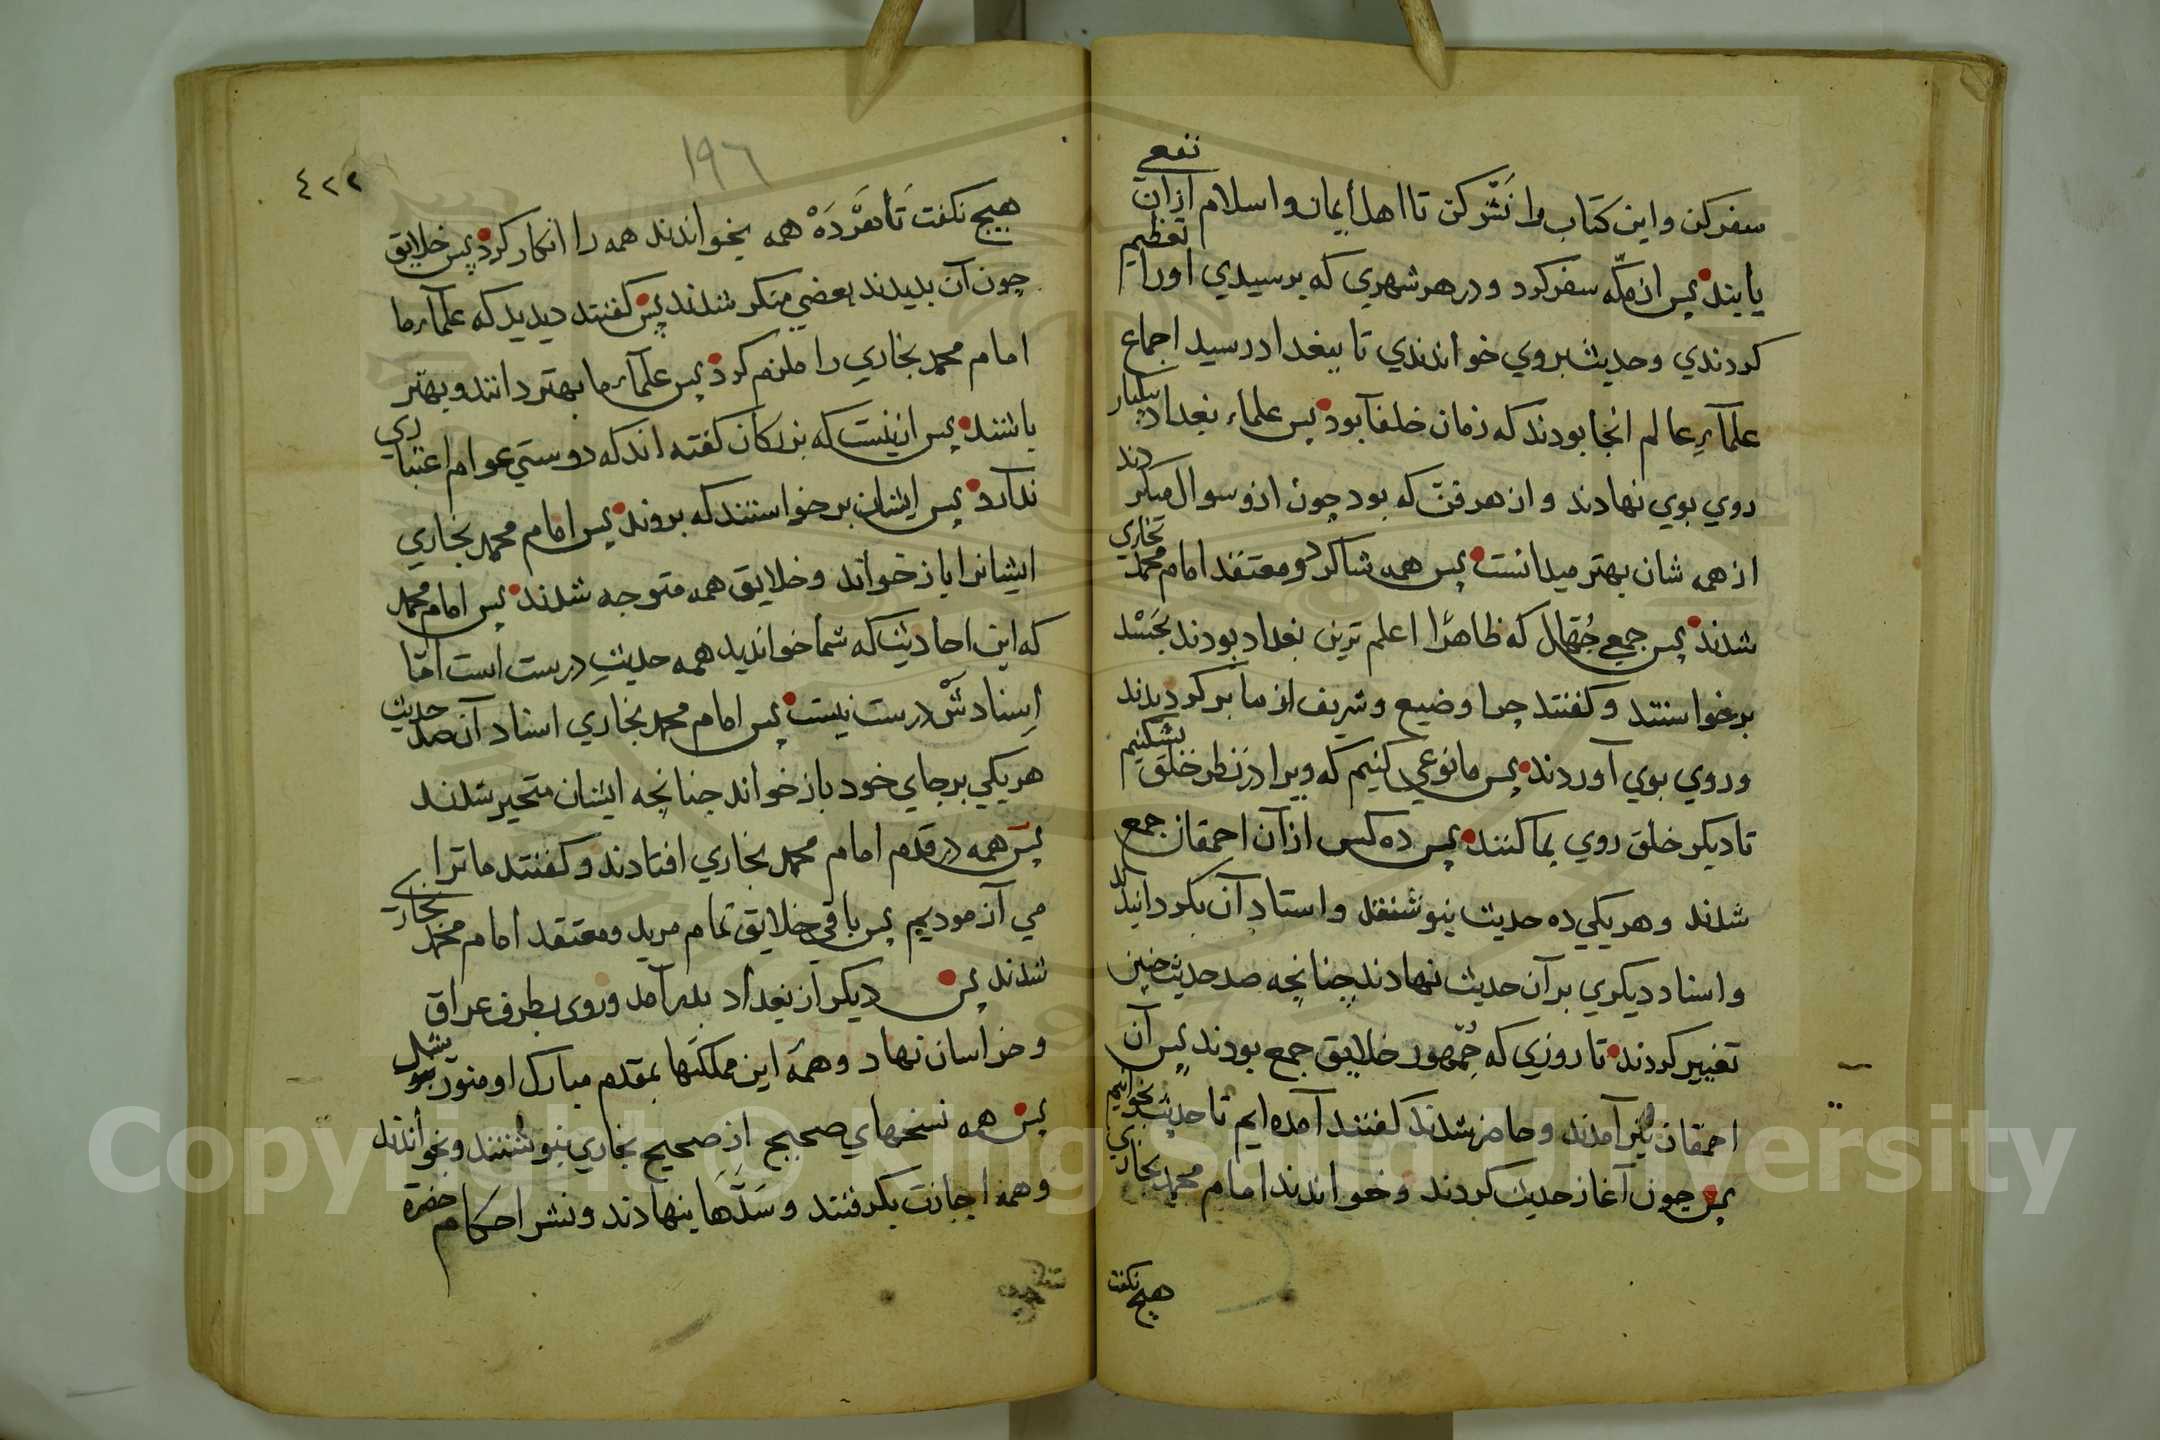 سفر کن و این کتاب را نَشْر کن تا اهل ایمان و اسلام ازان نفعی
یابند پس از مکّه سفر کرد و در هر شهری که برسیدی اورا تعظیم
کردندی و حدیث بروی خواندندی تا ببغداد رسید اجماع
علمآءِ عالم انجا بودند که زمان خلفآ بود پس علماء بغداد بیکبار
روی بوی نهادند و از هر فنّ که بود چون ازو سوال میکردند
از همه شان بهتر میدانست پس همه شاکرد و معتقد امام محمّد بخاری
شدند پس جمعی جُهّال که ظاهرًا اعلم ترین بغداد بودند بحَسَد
برخواستند و کفتند چرا وضیع و شریف از ما بر کردیدند
و روی بوی آوردند پس ما نوعی کنیم که ویرا در نظر خلق بشکنیم
تا دیکر خلق روی بما کنند پس ده کس از آن احمقان جمع
شدند و هر یکی ده حدیث بنوشتند و اسناد آن بکردانیدند
و اسناد دیکری بر آن حدیث نهادند چنانچه صد حدیث چنین
تغییر کردند تا روزی که جُمْهور خلایق جمع بودند پس آن
احمقان نیز آمدند و حاضر شدند کفتند آمده ایم تا حدیث بخوانیم
پس چون آغاز حدیث کردند و خواندند امام محمد بخاری
هیچ نکفت
١٩٦
٤٢٢
هیچ نکفت تَا هَرْ دَهْ همه بخواندند همه را انکار کرد پس خلایق
چون آن بدیدند بعضی منکر شدند پس کفتند دیدید که علمآء ما
امام محمد بخاری را ملزم کرد پس علمآء ما بهتر دانند و بهتر
باشند پس ازینست که بزرکان کفته اند که دوستی عوام اعتباری
ندارد پس ایشان برخواستند که بروند پس امام محمد بخاری
ایشانرا باز خواند و خلایق همه متوجه شدند پس امام محمد
که این احادیث که شما خواندید همه حدیثِ درست است امّا
اِسنادشْ درست نیست پس امام محمد بخاری اسناد آن صد حدیث
هر یکی بر جای خود باز خواند چنانچه ایشان متحیر شدند
پس همه در قدم امام محمد بخاری افتادند و کفتند ما ترا
می آزمودیم پس باقی خلایق تمام مرید و معتقد امام محمد بخاری
شدند پس دیکر از بغداد بدر آمد و روی بطرف عراق
و خراسان نهاد و همه این مملکتها بمقدم مبارک او منور
پس همه نسخهای صحیح از صحیح بخاری بنوشتند و بخواندند
و همه اجازت بکرفتند و سَدّها بنهادند و نشر احکام حضرة
Copyright © King Saud University